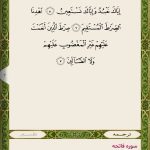 إِيَّاكَ نَعْبُدُ وَإِيَّاكَ نَسْتَعِينُ ۝ اهْدِنَا
الصِّرَاطَ الْمُسْتَقِيمَ ۝ صِرَاطَ الَّذِينَ أَنْعَمْتَ
عَلَيْهِمْ غَيْرِ الْمَغْضُوبِ عَلَيْهِمْ
وَلَا الضَّالِّينَ ۝
ترجمه
سوره فاتحه